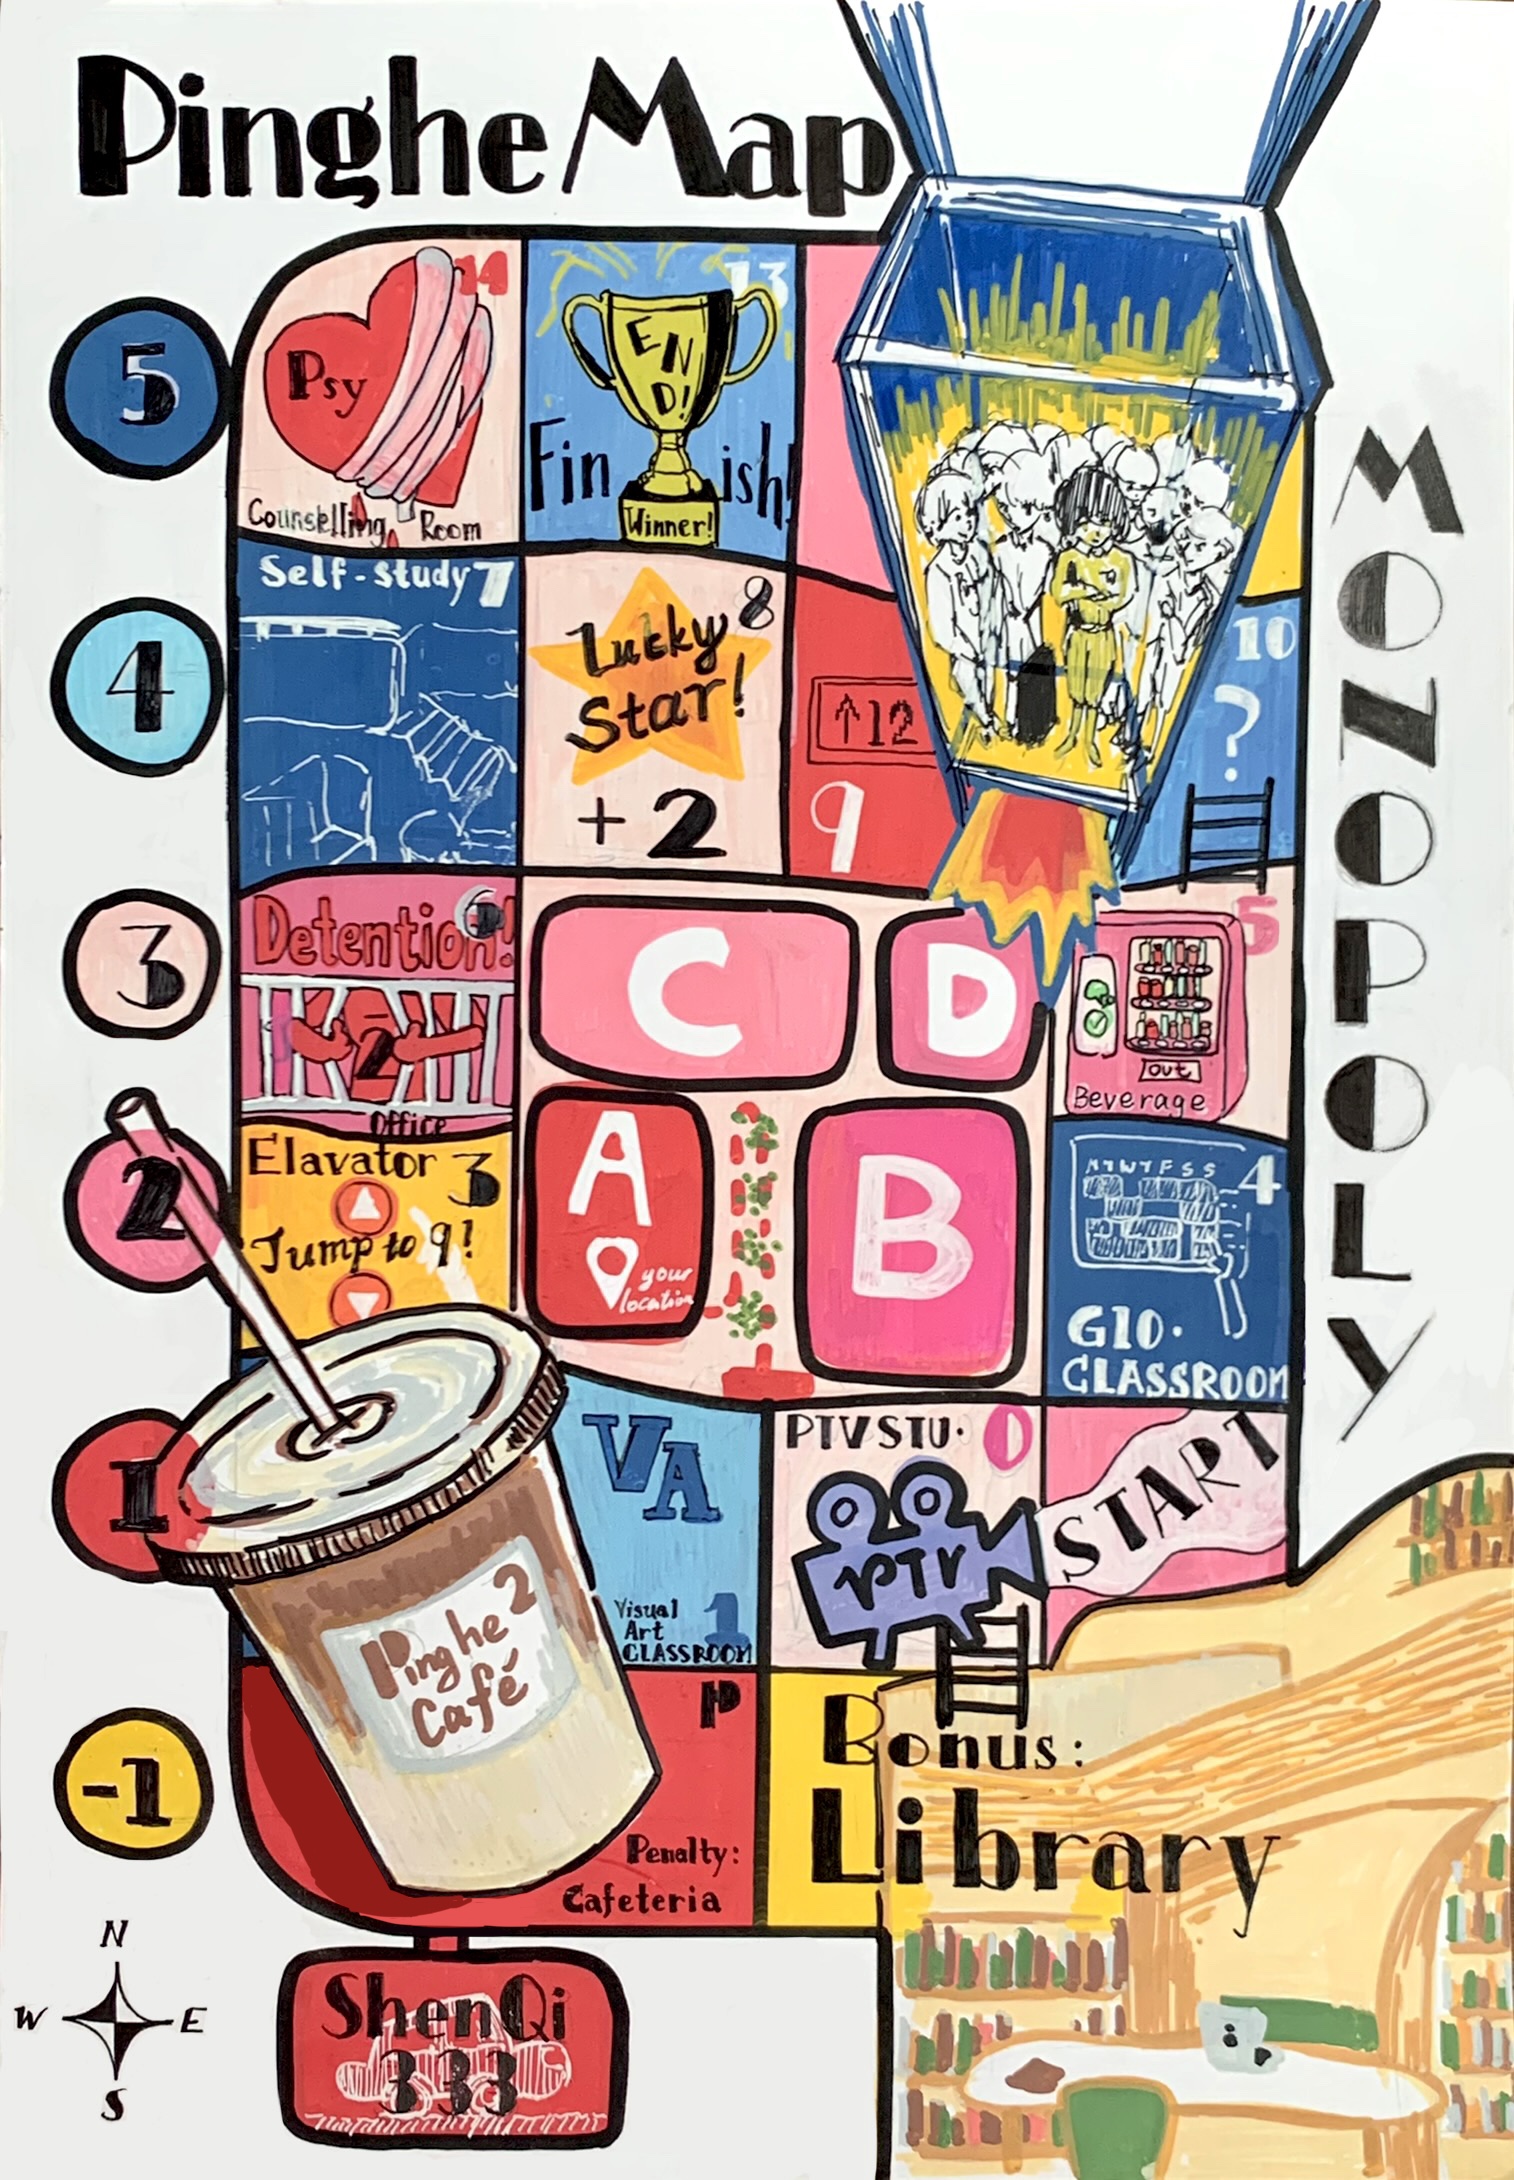 Pinghe Map
MONOPOLY
5
Psy
14
Counselling Room
13
END!
Finish!
Winner!
4
Self-study 7
Lucky 8
Star!
+2
↑12
9
10
?
3
Detention! 6
2
Office
C
D
5
out
Beverage
2
Elavator 3
Jump to 9!
A
your
location
B
M T W T F S S
4
G10.
CLASSROOM
1
VA
Visual
Art 1
CLASSROOM
PTV STU. 0
PTV
START
2
Pinghe
Café
-1
P
Penalty:
Cafeteria
Bonus:
Library
N
W E
S
ShenQi
333